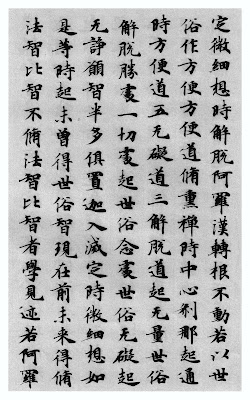 定微細想時解脫阿羅漢轉根不動若以世
俗作方便方便道脩熏禪時中心剎那起通
時方便道五无礙道三解脫道起无量世俗
解脫勝處一切處起世俗念處世俗无礙起
无諍願智半多俱置迦入滅定時微細想如
是等時起未曾得世俗智現在前未來得脩
法智比智不脩法智比智者學見迹若阿羅